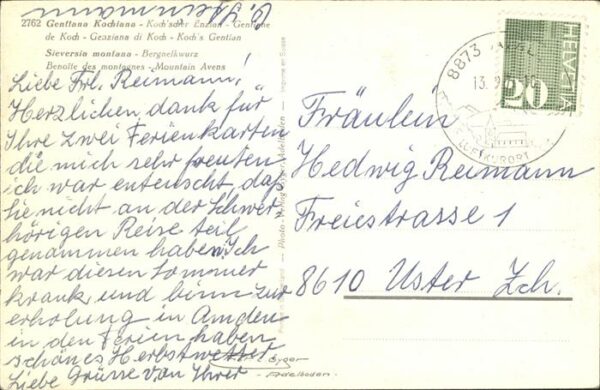 C. Herrmann
2762 Gentiana Kochiana - Koch'scher Enzian - Gentiane
de Koch - Genziana di Koch - Koch's Gentian
Sieversia montana - Bergnelkwurz
Benoîte des montagnes - Mountain Avens
Liebe Frl. Reimann!
Herzlichen dank für
Ihre zwei Ferienkarten
die mich sehr freuten
ich war enteuscht, daß
Sie nicht an der Schwer-
hörigen Reise teil
genammen haben. Ich
war diesen Sommer
krank und binn zur
erholung in Amden
in den Ferien haben
schönes Herbstwetter
Liebe Grüsse von Ihrer
Imprimé en Suisse
Photo
Gyger
Adelboden
HELVETIA
20
8873
13.9
LUFTKURORT
Fräulein
Hedwig Reimann
Freiestrasse 1
8610 Uster Zch.